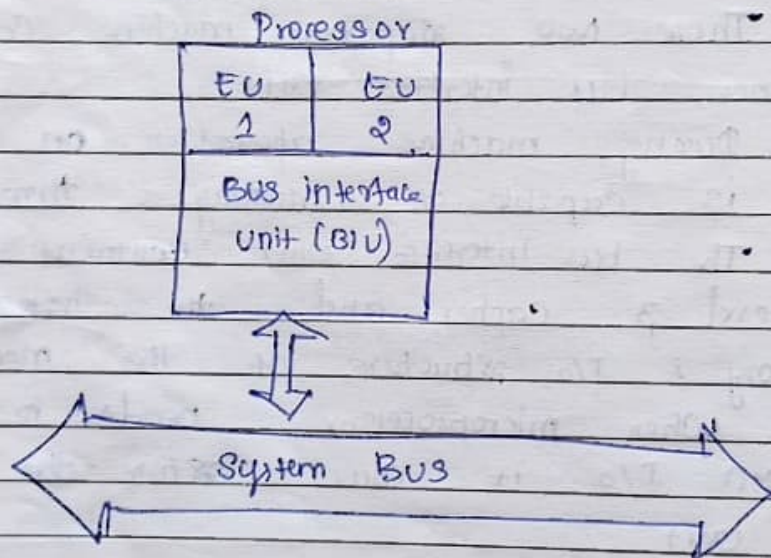 Processor
EU EU
1 2
BUS interface
unit (BIU)
System BUS